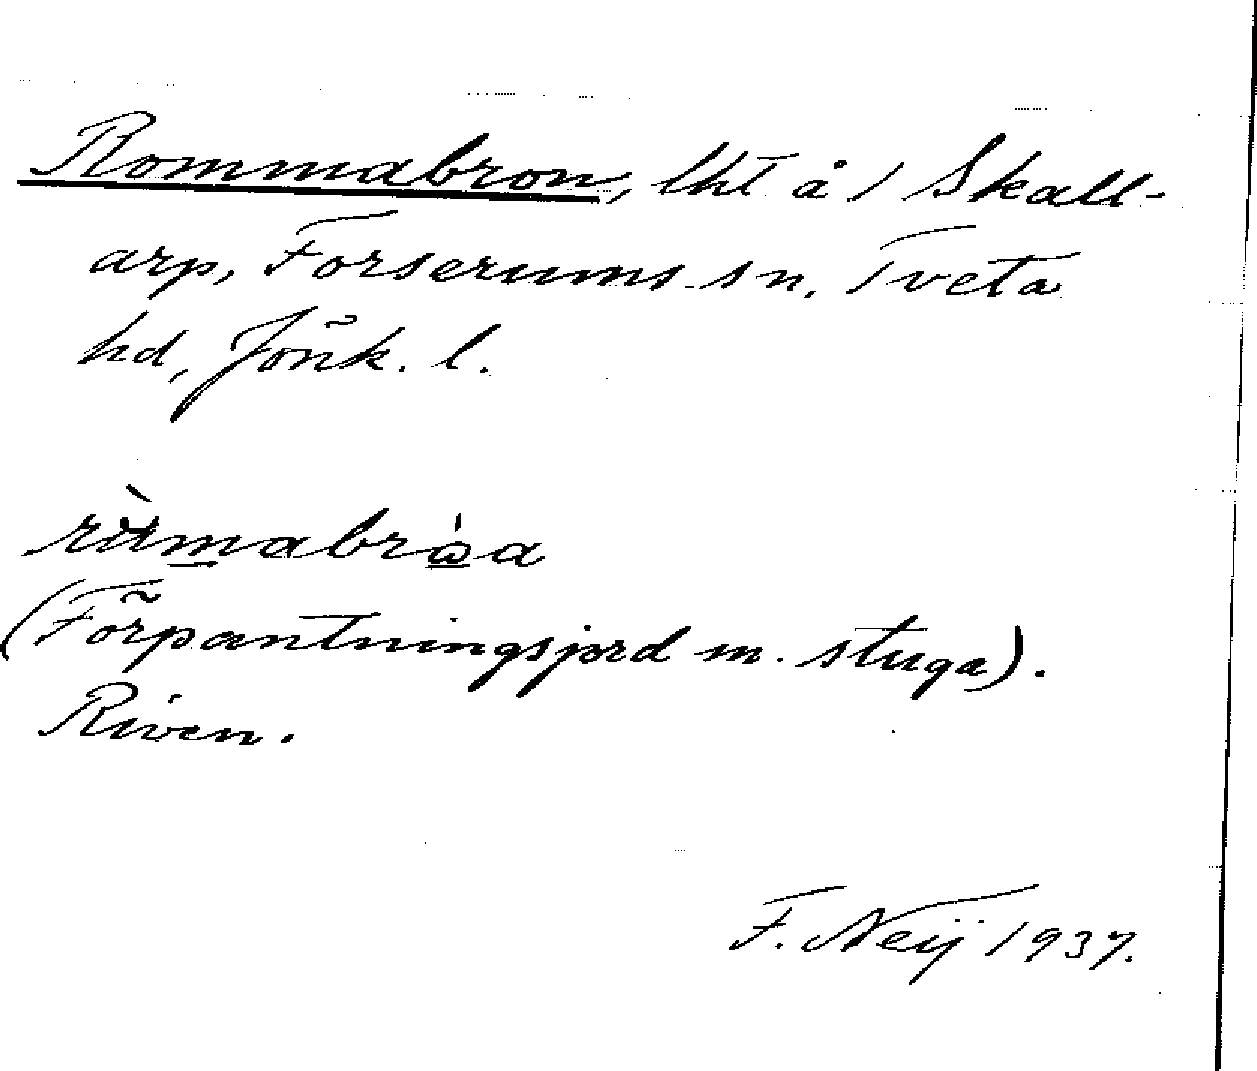 Rommabron, lht å 1 Skall-
arp, Forserums sn, Tveta
hd, Jönk. l.
(Förpantningsjord m. stuga).
Riven.
F. Neij 1937.